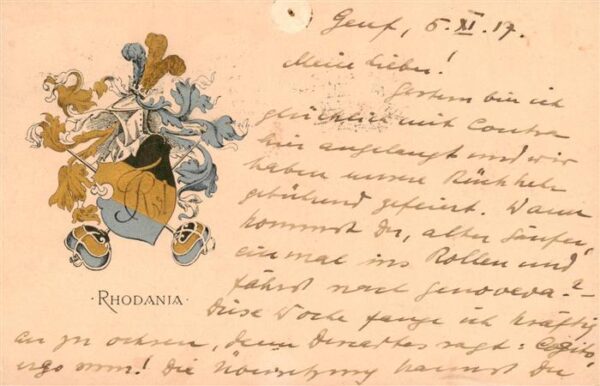 Genf, 5. XI. 17.
Meine Lieben!
Gestern bin ich
glücklich mit Contra
hier angelangt und wir
haben unsere Rückkehr
gebührend gefeiert. Wann
kommst du, alter Säufer,
einmal ins Rollen und
fährst nach Genoveva? -
Diese Woche fange ich kräftig
an zu ochsen, denn Descartes sagt: Cogito,
ergo sum! Die kannst Du
RHODANIA